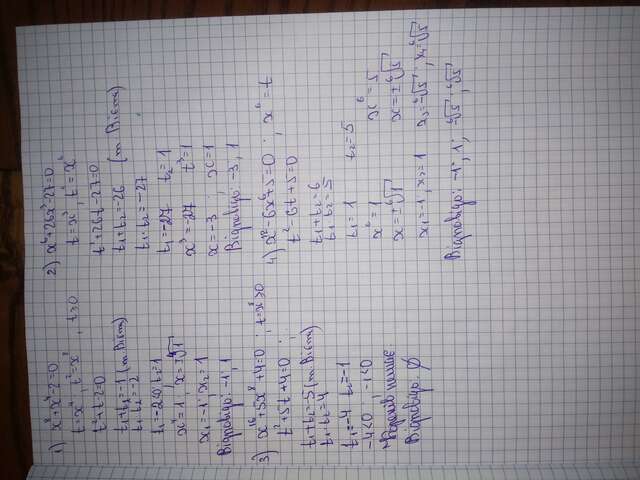 1) x⁸+x⁴-2=0
t=x⁴, t²=x⁸, t≥0
t²+t-2=0
t₁+t₂=-1 (т. Вієта)
t₁·t₂=-2
t₁=-2<0; t₂=1
x⁴=1; x=±⁴√1
x₁=-1; x₂=1
Відповідь: -1; 1
2) x⁶+26x³-27=0
t=x³, t²=x⁶
t²+26t-27=0
t₁+t₂=-26 (т. Вієта)
t₁·t₂=-27
t₁=-27 t₂=1
x³=-27 x³=1
x=-3; x=1
Відповідь: -3; 1
3) x¹⁶+5x⁸+4=0; t=x⁸≥0
t²+5t+4=0;
t₁+t₂=-5 (т. Вієта)
t₁·t₂=4
t₁=-4 t₂=-1
-4<0, -1<0
Коренів немає
Відповідь: ∅
4) x¹²-6x⁶+5=0; x⁶=t
t²-6t+5=0
t₁+t₂=6
t₁·t₂=5
t₁=1 t₂=5
x⁶=1 x⁶=5
x=±⁶√1 x=±⁶√5
x₁=-1, x₂=1 x₃=-⁶√5; x₄=⁶√5
Відповідь: -1; 1; -⁶√5; ⁶√5